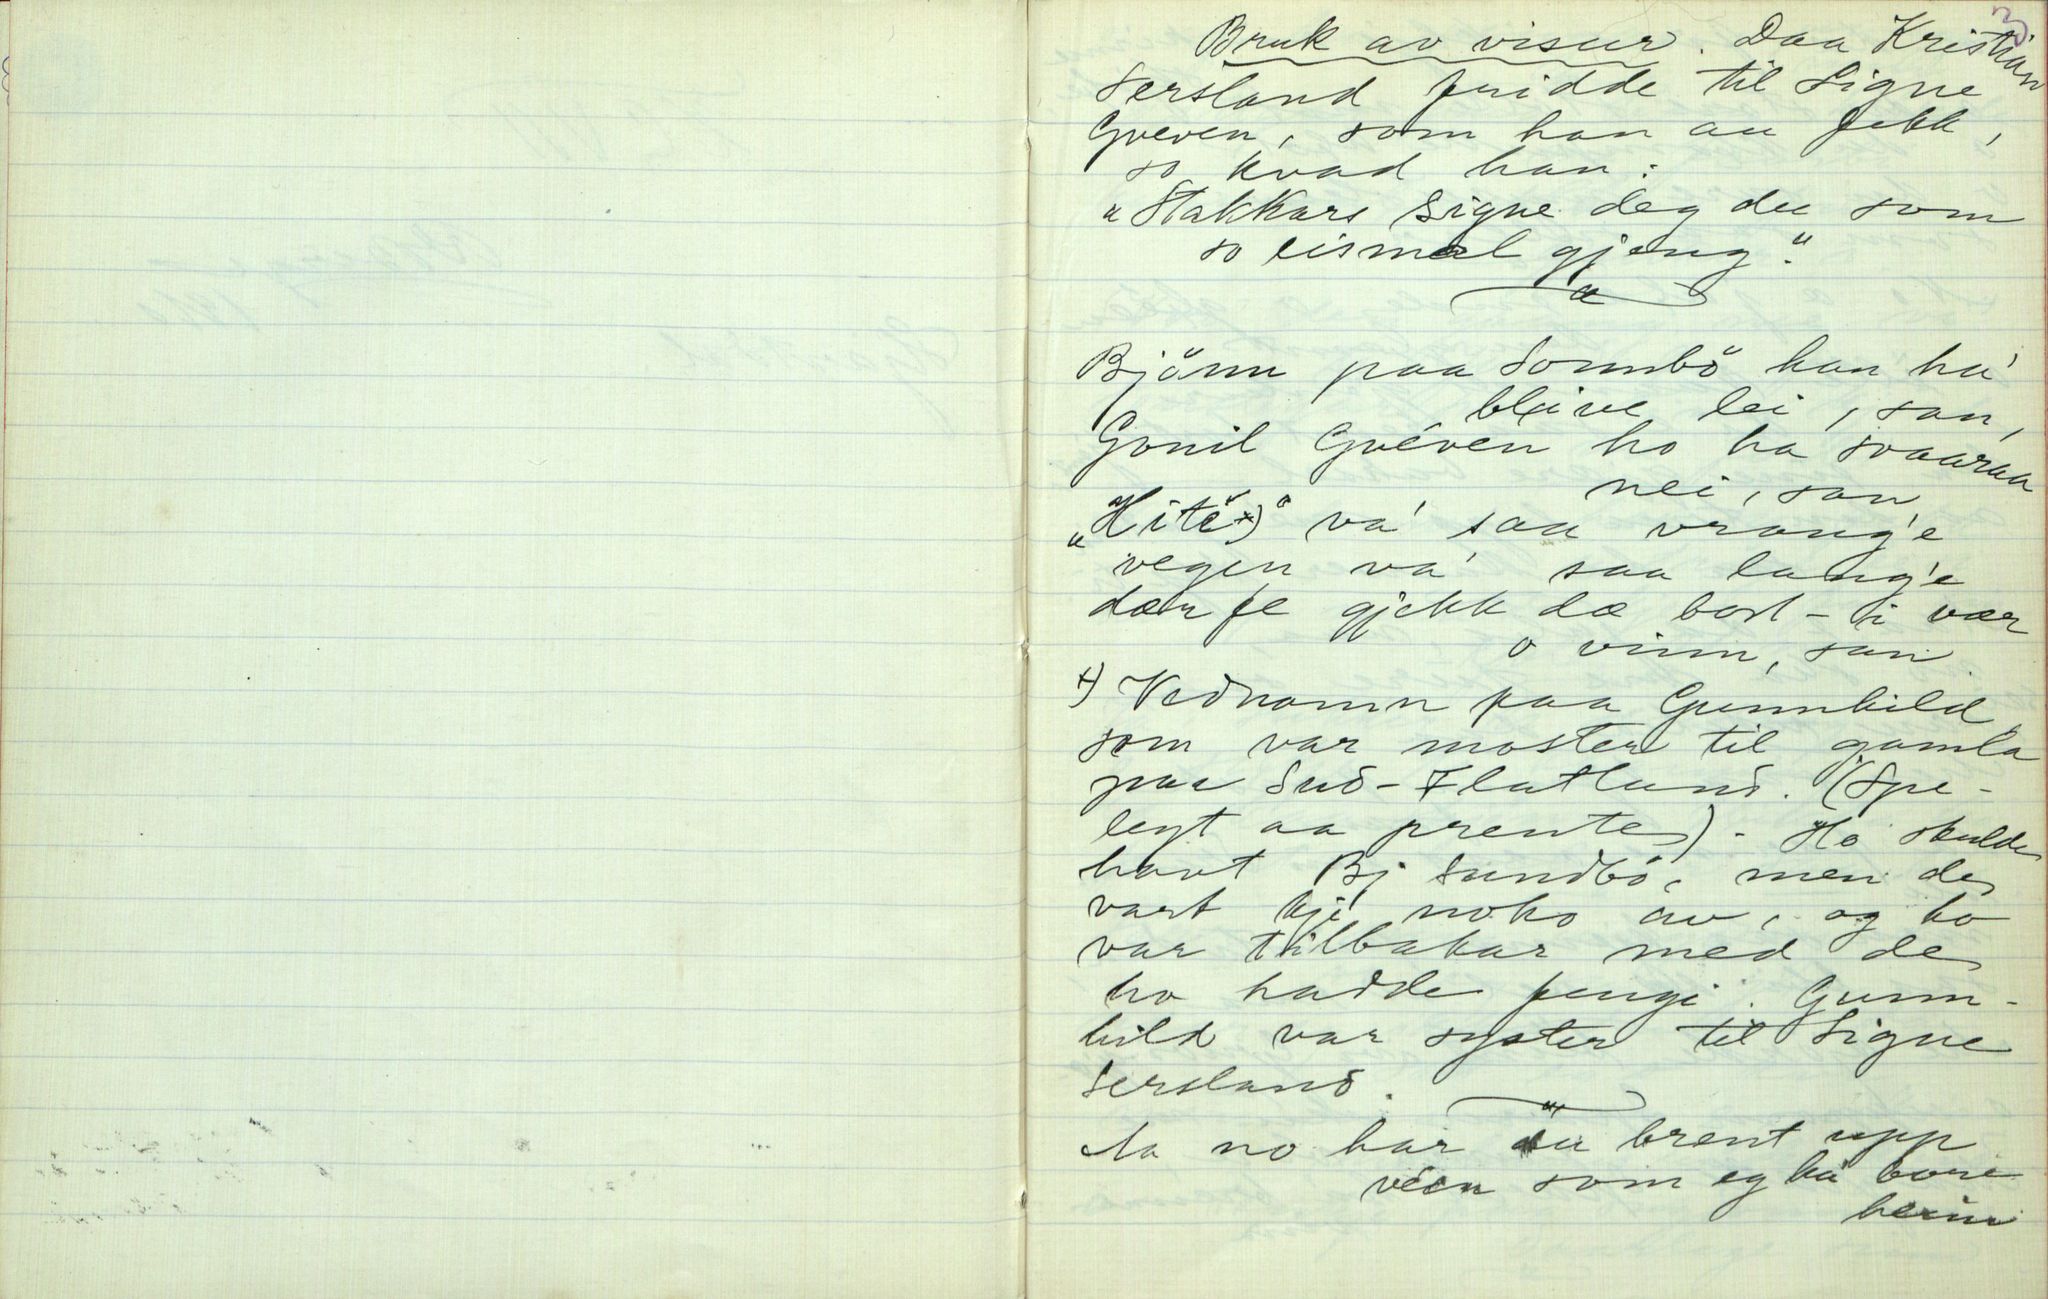 3
Bruk av visur. Daa Kristian
Sersland fridde til Signe
Gveven, som han au fekk,
so kvad han:
"Stakkars Signe deg du som
so eismal gjeng".
Bjönn paa Sonnbö han ha'
bleive lei, san,
Gonil Gvéven ho ha svaaraa
nei, san
"Hitě x)" va' saa vrang'e
vegen va' saa lang'e
dær fe gjekk dæ bort-i vær
o vinn, san
x) Vednamn paa Gunnhild
som var moster til gamla
paa Sud-Flatland. (Spe-
legt aa prente). Ho skulde
havt Bj Sundbö, men de
vart kje noko av, og ho
var tilbakar med de
ho hadde fengi. Gunn-
hild var syster til Signe
Sersland.
Aa no har du brent upp
véen som eg ha bore
heim